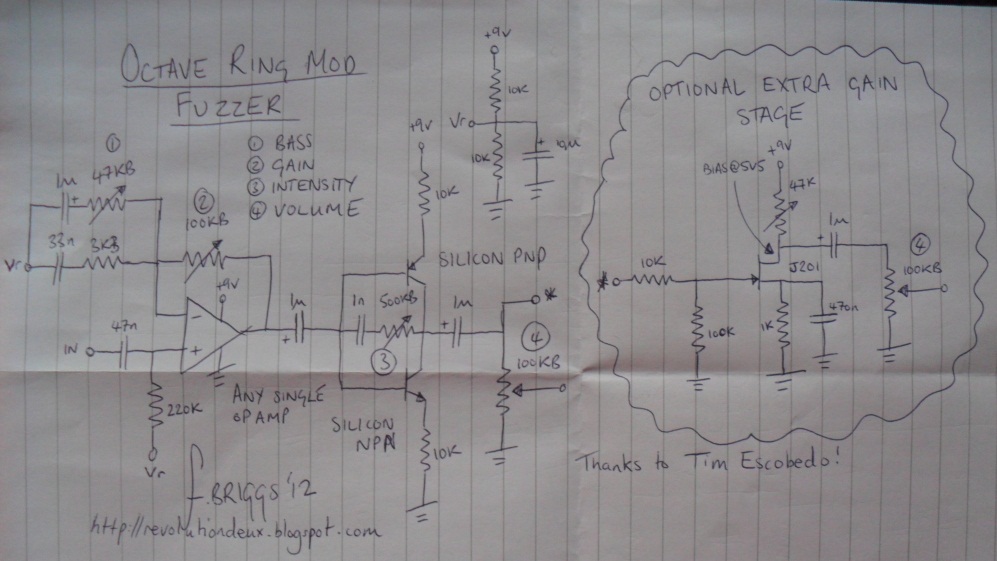 OCTAVE RING MOD
FUZZER
① BASS
② GAIN
③ INTENSITY
④ VOLUME
①
1u
+
47KB
33n
3K3
Vr
②
100KB
+9v
−
+
47n
IN
220K
Vr
ANY SINGLE
OP AMP
1u
+
+9v
10K
Vr
10K
10u
+9v
10K
SILICON PNP
1n
500KB
③
1u
+
*
④
100KB
SILICON
NPN
10K
OPTIONAL EXTRA GAIN
STAGE
+9v
BIAS@5V5
47K
1u
+
④
100KB
J201
*
10K
100K
1K
470n
Thanks to Tim Escobedo!
F.BRIGGS '12
http://revolutiondeux.blogspot.com